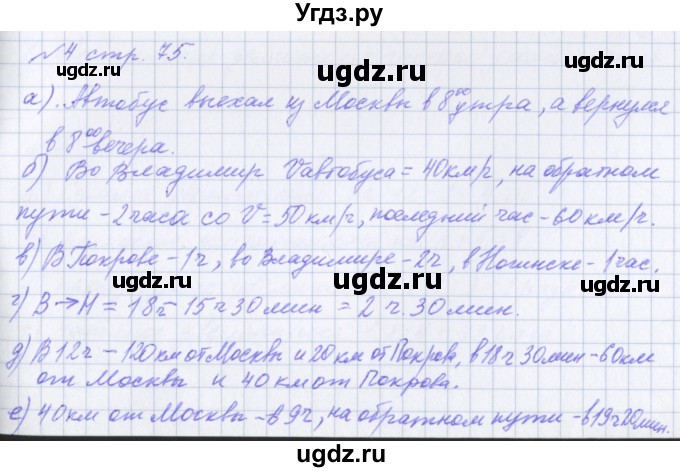 Угдз.ру
№4 стр. 75.
ugdz.ru ugdz.ru
а). Автобус выехал из Москвы в 8⁰⁰ утра, а вернулся
в 8⁰⁰ вечера.
ugdz.ru ugdz.ru
б) Во Владимир Vавтобуса = 40 км/ч, на обратном
пути - 2 часа со V = 50 км/ч, последний час - 60 км/ч.
ugdz.ru ugdz.ru
в) В Покрове - 1 ч, во Владимире - 2 ч, в Ногинске - 1 час.
г) В → Н = 18 ч - 15 ч 30 мин = 2 ч. 30 мин.
ugdz.ru ugdz.ru
д) В 12 ч - 120 км от Москвы и 20 км от Покрова, в 18 ч 30 мин - 60 км
от Москвы и 40 км от Покрова.
ugdz.ru ugdz.ru
е) 40 км от Москвы - в 9 ч, на обратном пути - в 19 ч 20 мин.
ugdz.ru ugdz.ru